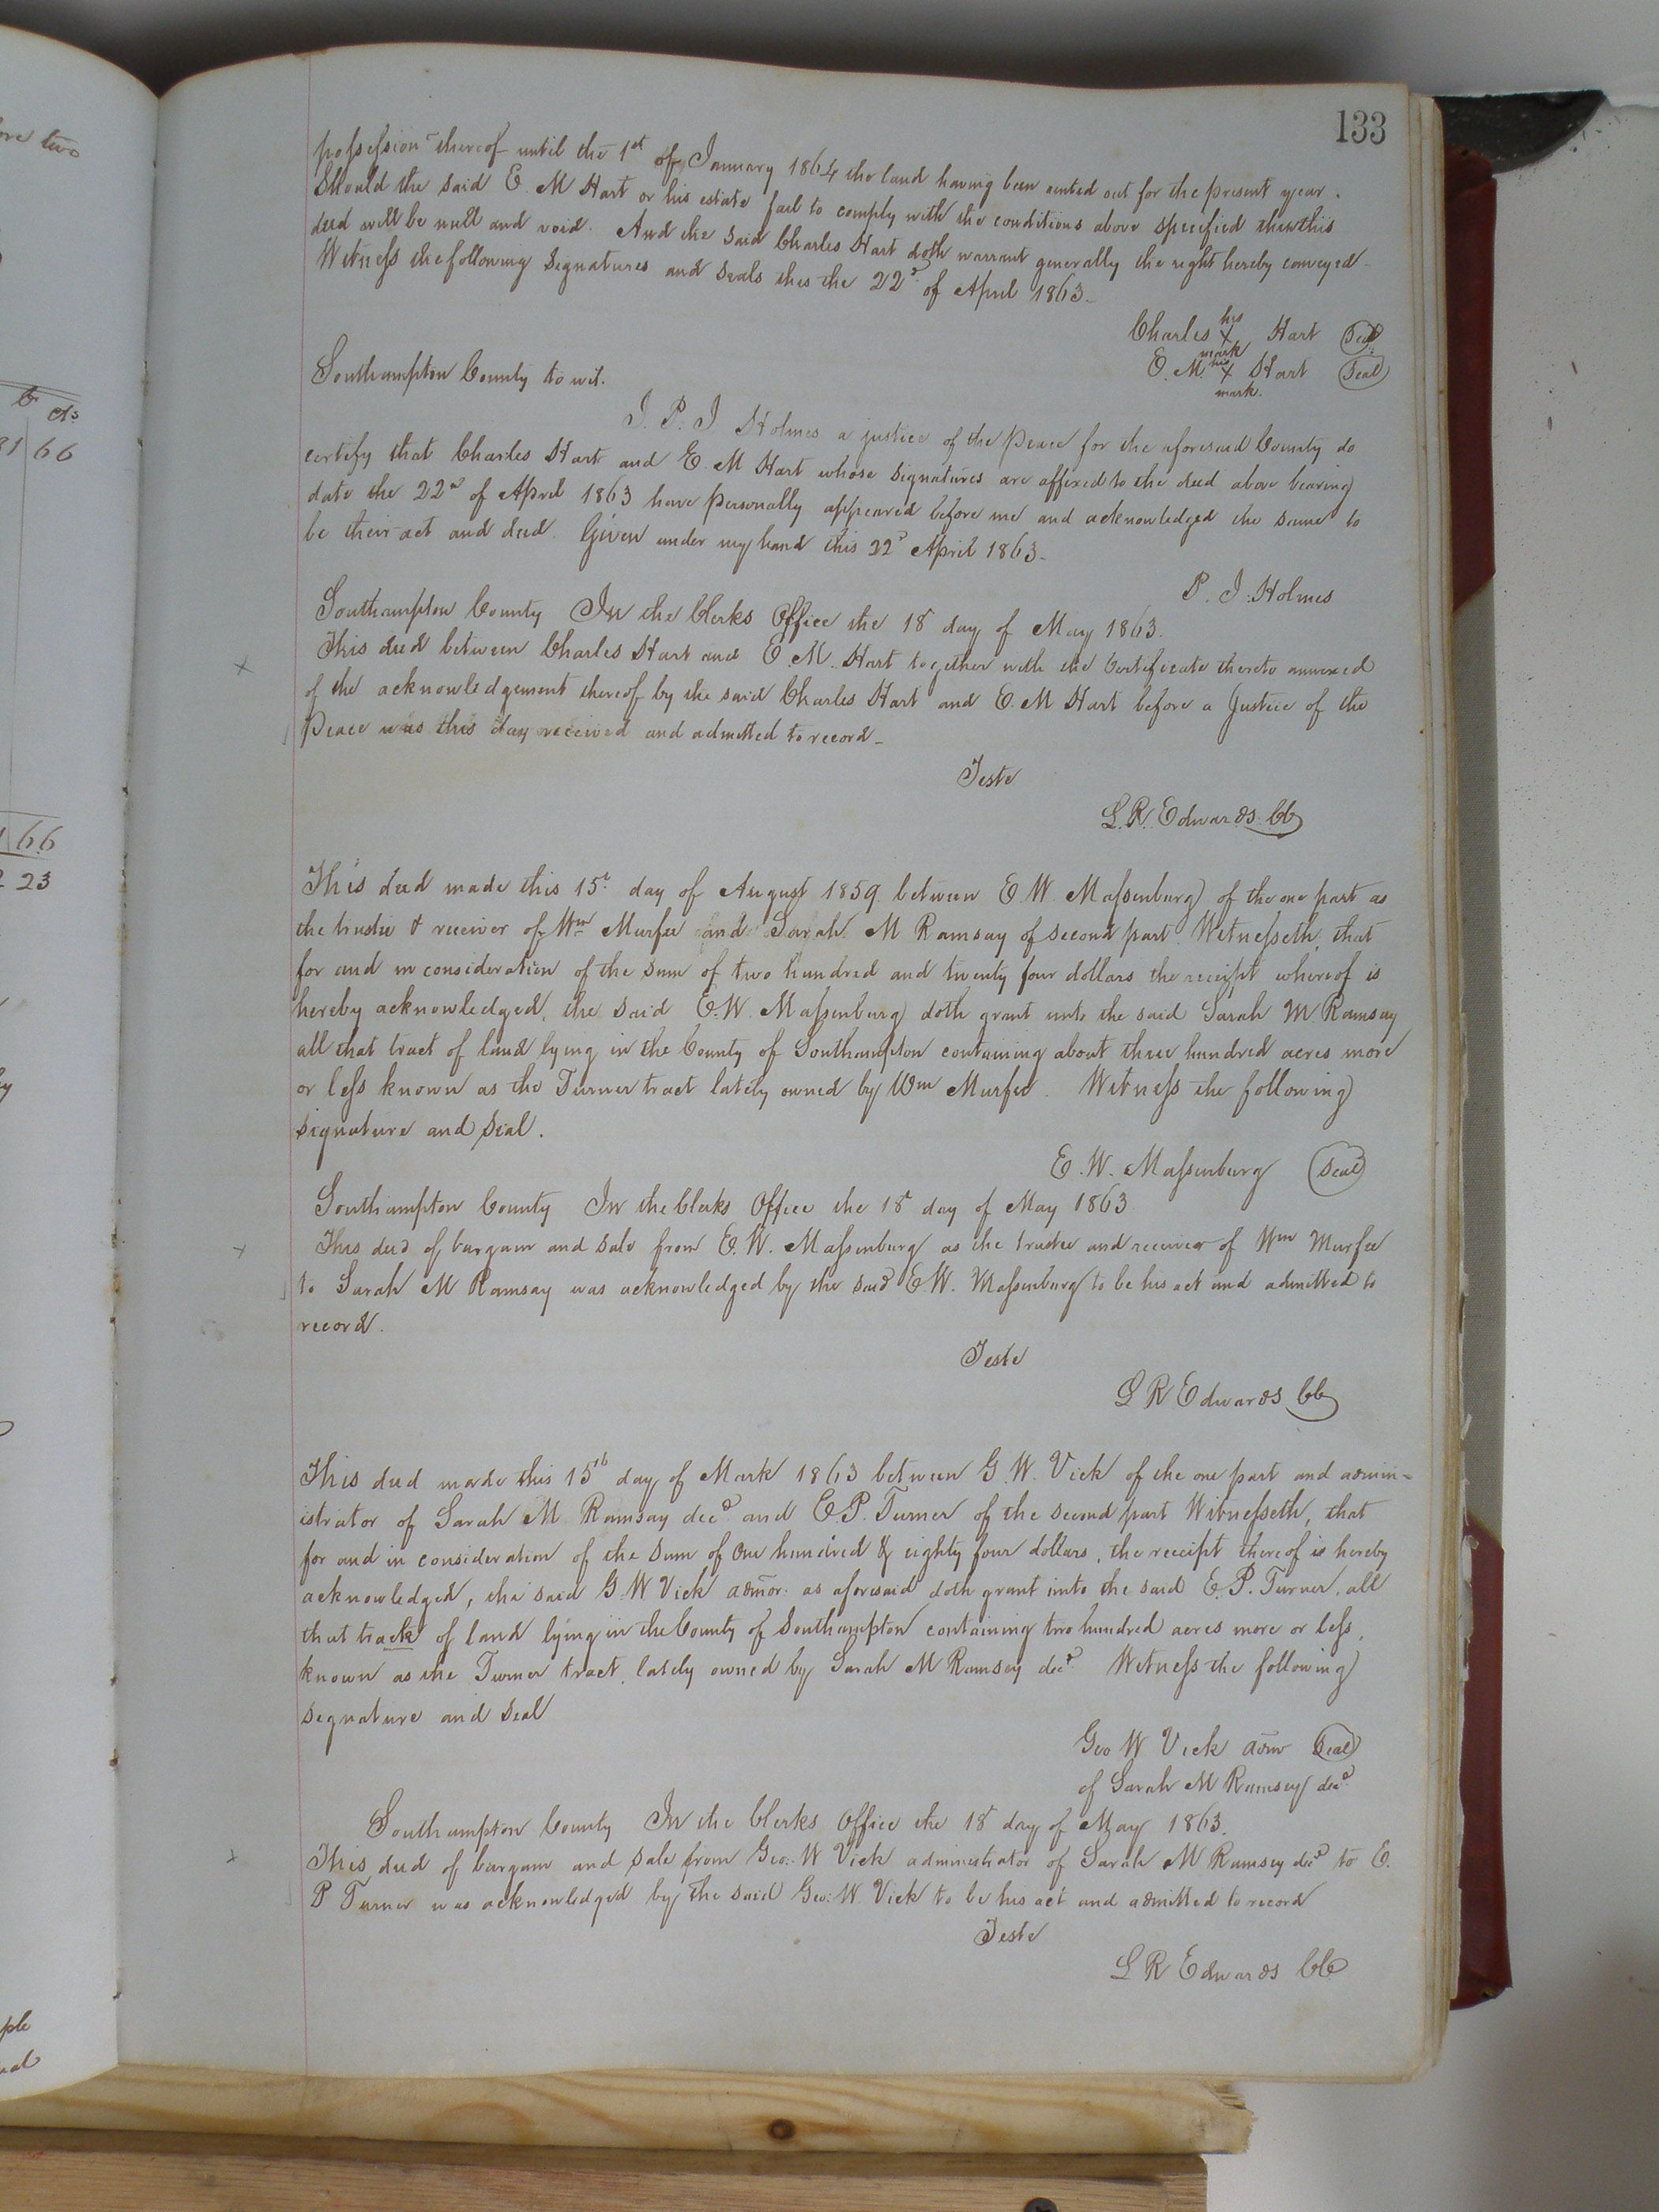 133
possession thereof until the 1st of January 1864 the land having been rented out for the present year.
Should the said E. M Hart or his estate fail to comply with the conditions above specified then this
deed will be null and void. And the said Charles Hart doth warrant generally the right hereby conveyed
Witness the following signatures and seals this the 22d of April 1863.
Charles his X mark Hart Seal
E. M. his X mark Hart Seal
Southampton County to wit.
I. P. J Holmes a justice of the Peace for the aforesaid County do
certify that Charles Hart and E. M Hart whose signatures are affixed to the deed above bearing
date the 22nd of April 1863 have personally appeared before me and acknowledged the same to
be their act and deed. Given under my hand this 22d April 1863.
P. J. Holmes
Southampton County In the Clerks Office the 18 day of May 1863.
This deed between Charles Hart and E. M. Hart together with the Certificate thereto annexed
of the acknowledgement thereof by the said Charles Hart and E. M Hart before a Justice of the
Peace was this day received and admitted to record
Teste
L. R. Edwards CC
This deed made this 15t day of August 1859 between E. W. Massenburg of the one part as
the trustee & receiver of Wm Murfee and Sarah M Ramsay of second part Witnesseth, that
for and in consideration of the sum of two hundred and twenty four dollars the receipt whereof is
hereby acknowledged, the said E. W. Massenburg doth grant unto the said Sarah M Ramsay
all that tract of land lying in the County of Southampton containing about three hundred acres more
or less known as the Turner tract lately owned by Wm Murfee. Witness the following
signature and seal.
E. W. Massenburg Seal
Southampton County In the Clerks Office the 18 day of May 1863
This deed of bargain and sale from E. W. Massenburg as the trustee and receiver of Wm Murfee
to Sarah M Ramsay was acknowledged by the said E W. Massenburg to be his act and admitted to
record.
Teste
L R Edwards CC
This deed made this 15th day of Mark 1863 between G. W. Vick of the one part and admin=
istrator of Sarah M Ramsay decd and E. P. Turner of the second part Witnesseth, that
for and in consideration of the sum of One hundred & eighty four dollars, the receipt thereof is hereby
acknowledged, the said G. W Vick admor. as aforesaid doth grant unto the said E. P. Turner, all
that track of land lying in the County of Southampton containing two hundred acres more or less,
known as the Turner tract, lately owned by Sarah M Ramsey decd. Witness the following
signature and seal
Geo W Vick adm Seal
of Sarah M Ramsey decd
Southampton County In the Clerks Office the 18 day of May 1863.
This deed of bargain and sale from Geo: W Vick administrator of Sarah M Ramsey decd to E.
P Turner was acknowledged by the said Geo: W Vick to be his act and admitted to record
Teste
L R Edwards CC